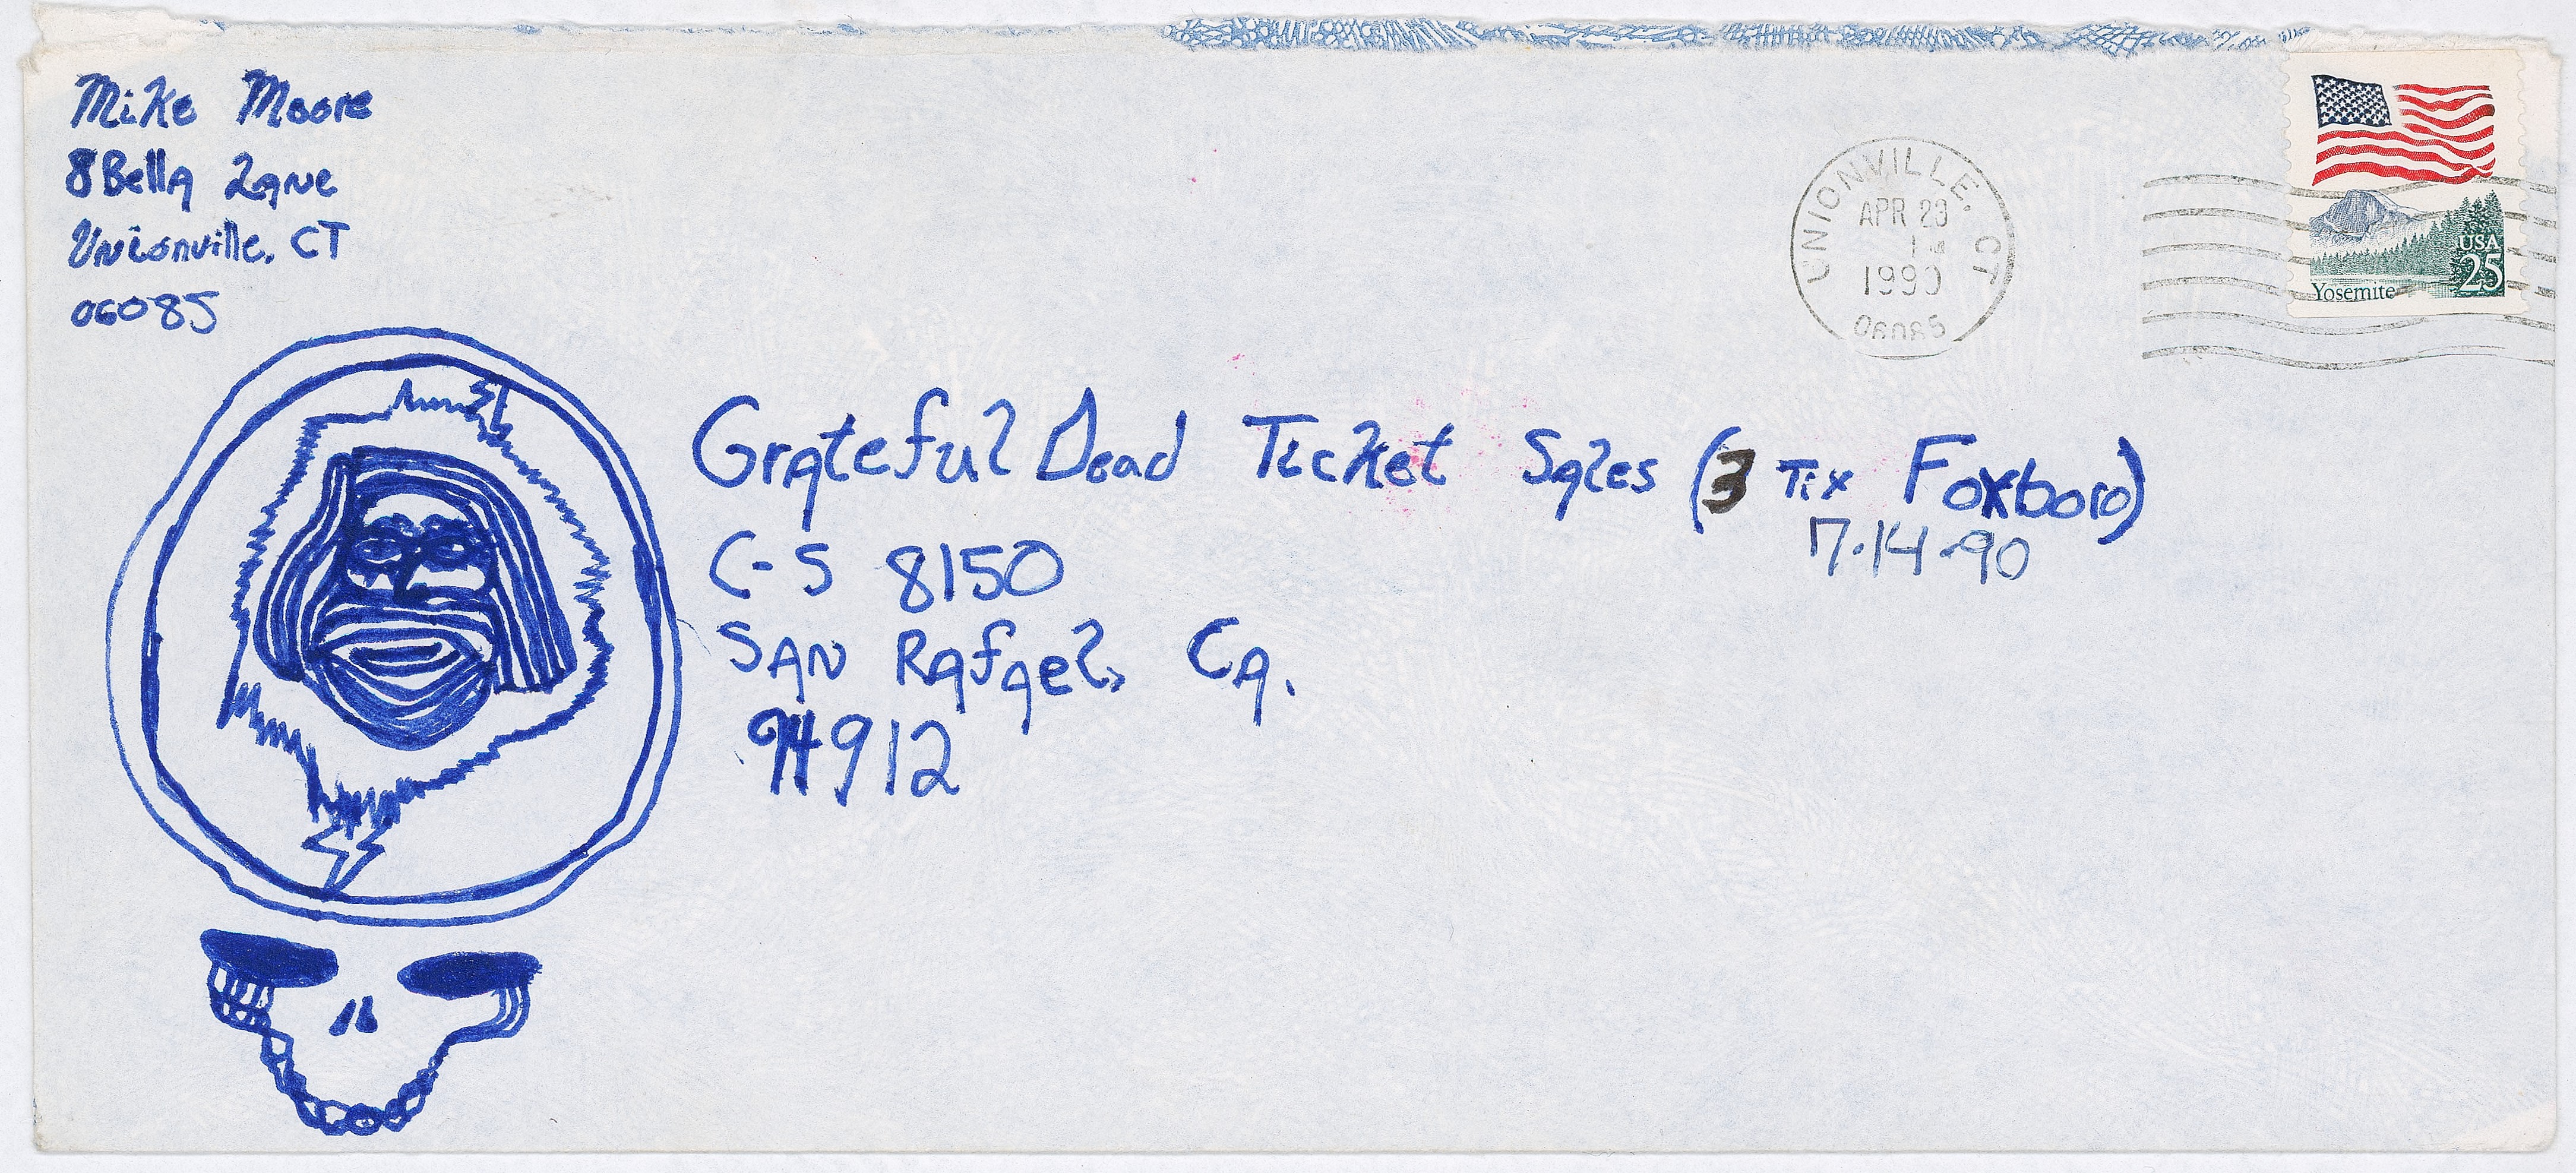 Mike Moore
8 Bella Lane
Unionville, CT
06085
UNIONVILLE, CT
APR 28
1990
06085
USA
25
Yosemite
Grateful Dead Ticket Sales (3 Tix Foxboro)
7.14.90
C-S 8150
SAN Rafael, Ca.
94912